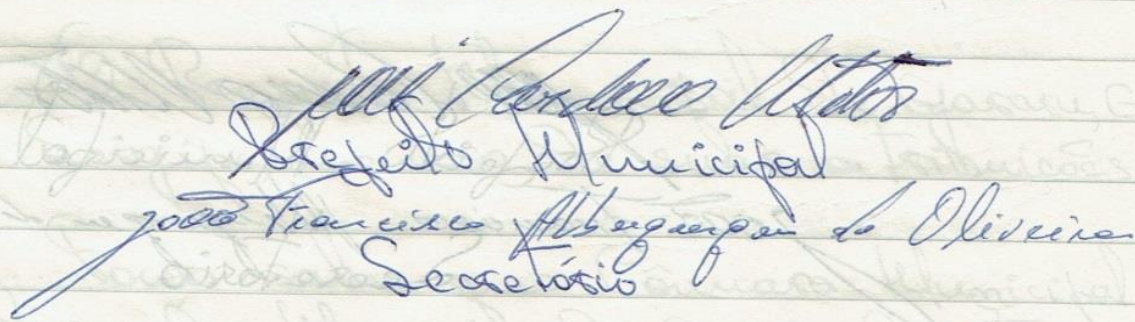 José Cardoso
Prefeito Municipal
João Francisco Albuquerque de Oliveira
Secretário